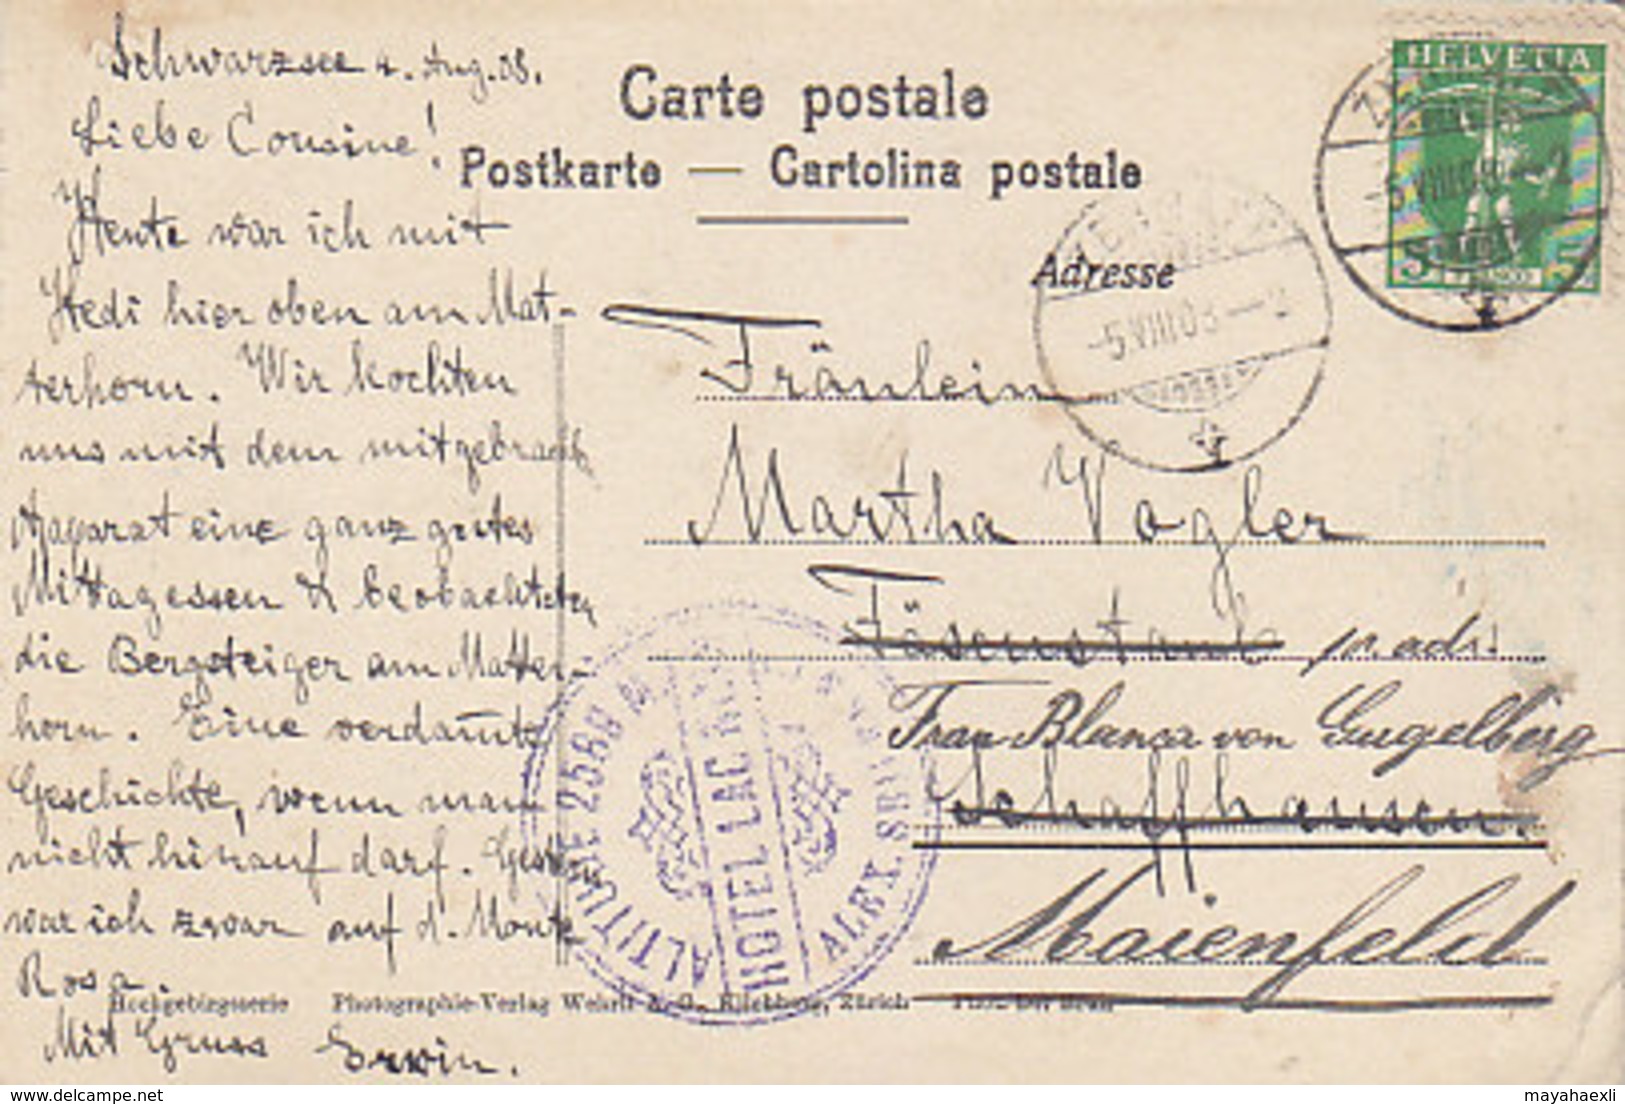 Schwarzsee 4. Aug. 08.
Liebe Cousine!
Heute war ich mit
Hedi hier oben am Mat-
terhorn. Wir kochten
uns mit dem mitgebracht
Apparat eine ganz gutes
Mittagessen & beobachteten
die Bergsteiger am Matter-
horn. Eine verdammte
Geschichte, wenn man
nicht hinauf darf. Gestern
war ich zwar auf d. Monte
Rosa.
Mit Gruss Erwin.
Carte postale
Postkarte — Cartolina postale
Adresse
HELVETIA
5 5
-5.VIII.08—2
-5.VIII.08—2
Fräulein
Martha Vogler
Fäsenstaub pr. adr.
Frau Blanca von Gugelberg
Schaffhausen.
Maienfeld
ALTITUDE 2589 M.
HOTEL LAC
ALEX. SEILER
Hochgebirgsserie Photographie-Verlag Wehrli A.-G., Kilchberg, Zürich
delcampe.net
mayahaexli